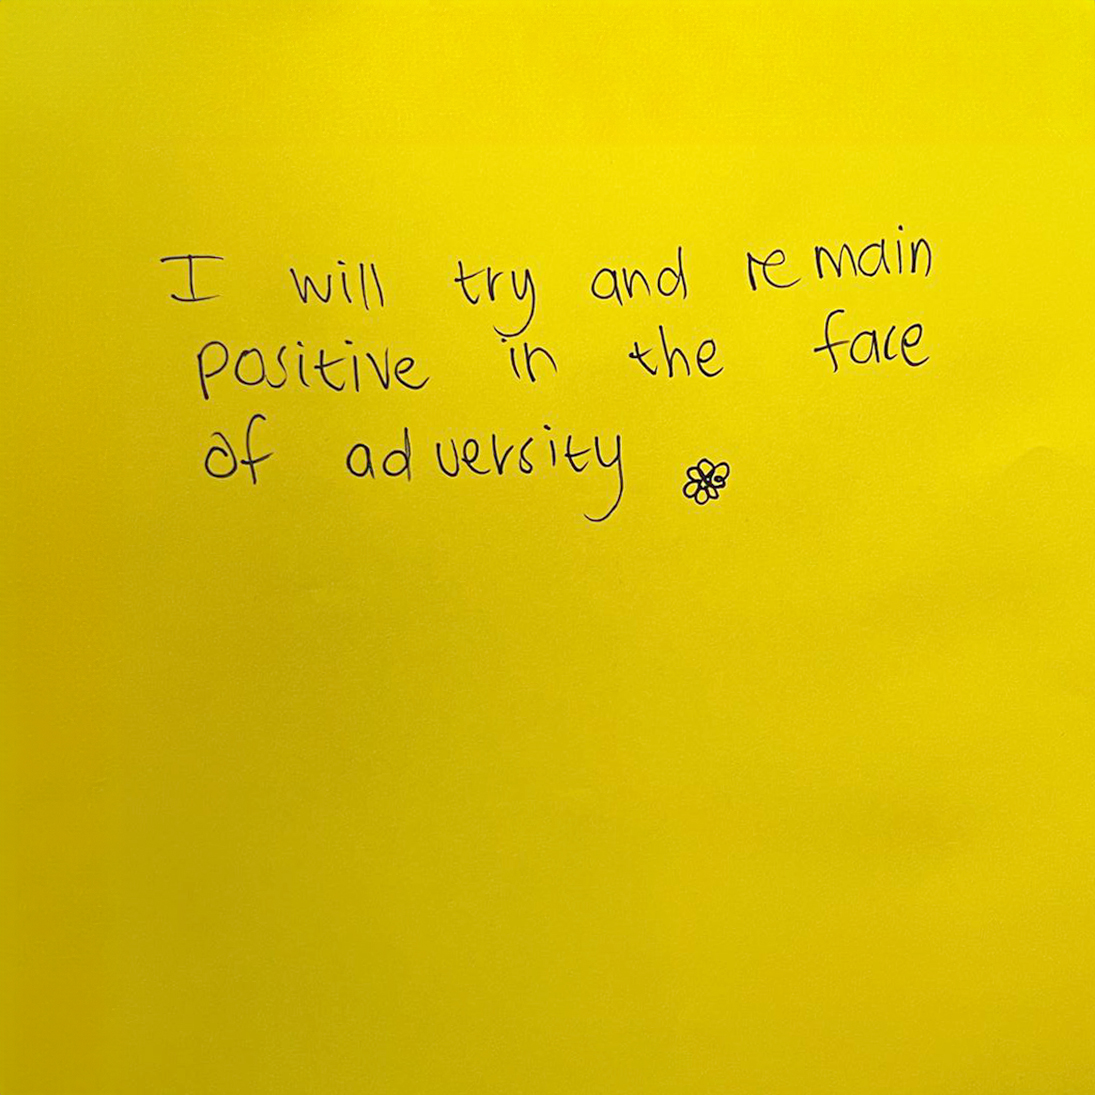 I will try and remain
positive in the face
of adversity